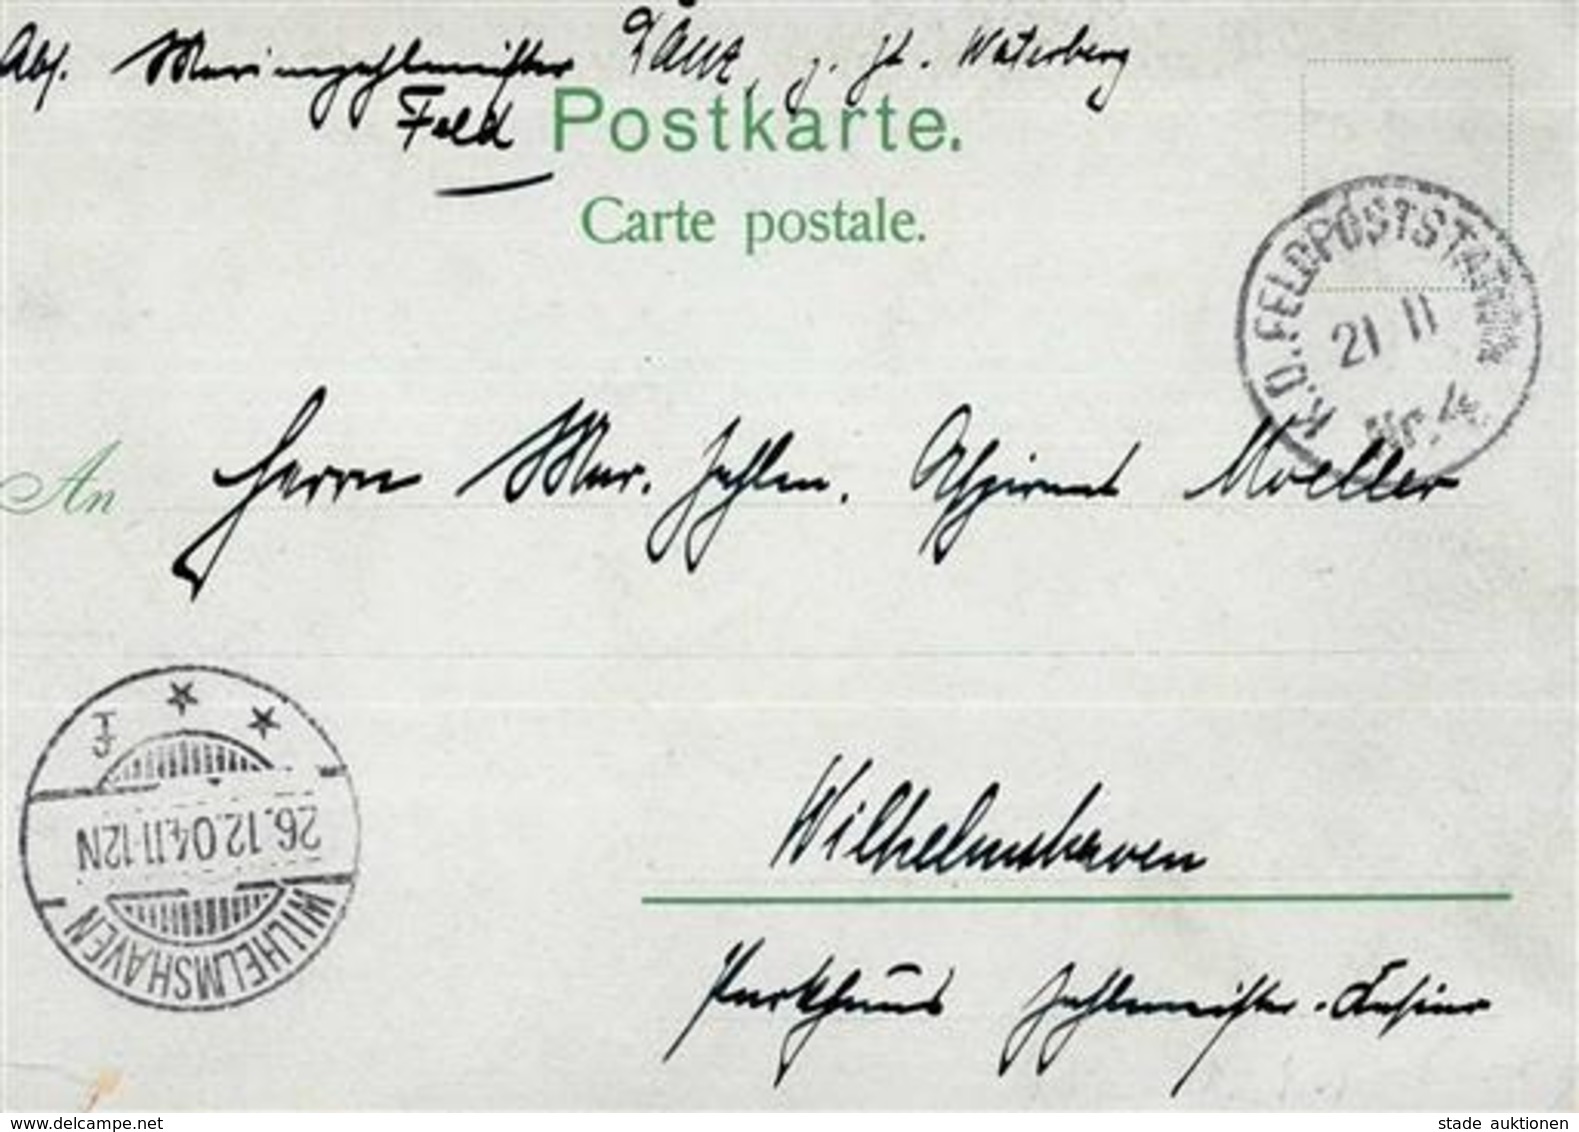 Abs. Marinezahlmeister Länz z. Zt. Waterberg
Feld Postkarte.
Carte postale.
K.D. FELDPOSTSTATION
21 11
Nr. 4
An Herrn Mar. Zahlm. Aspirant Moeller
26.12.04.11-12N
WILHELMSHAVEN
Wilhelmshaven
Parkhaus Zahlmeister-Kasino
delcampe.net
stade auktionen